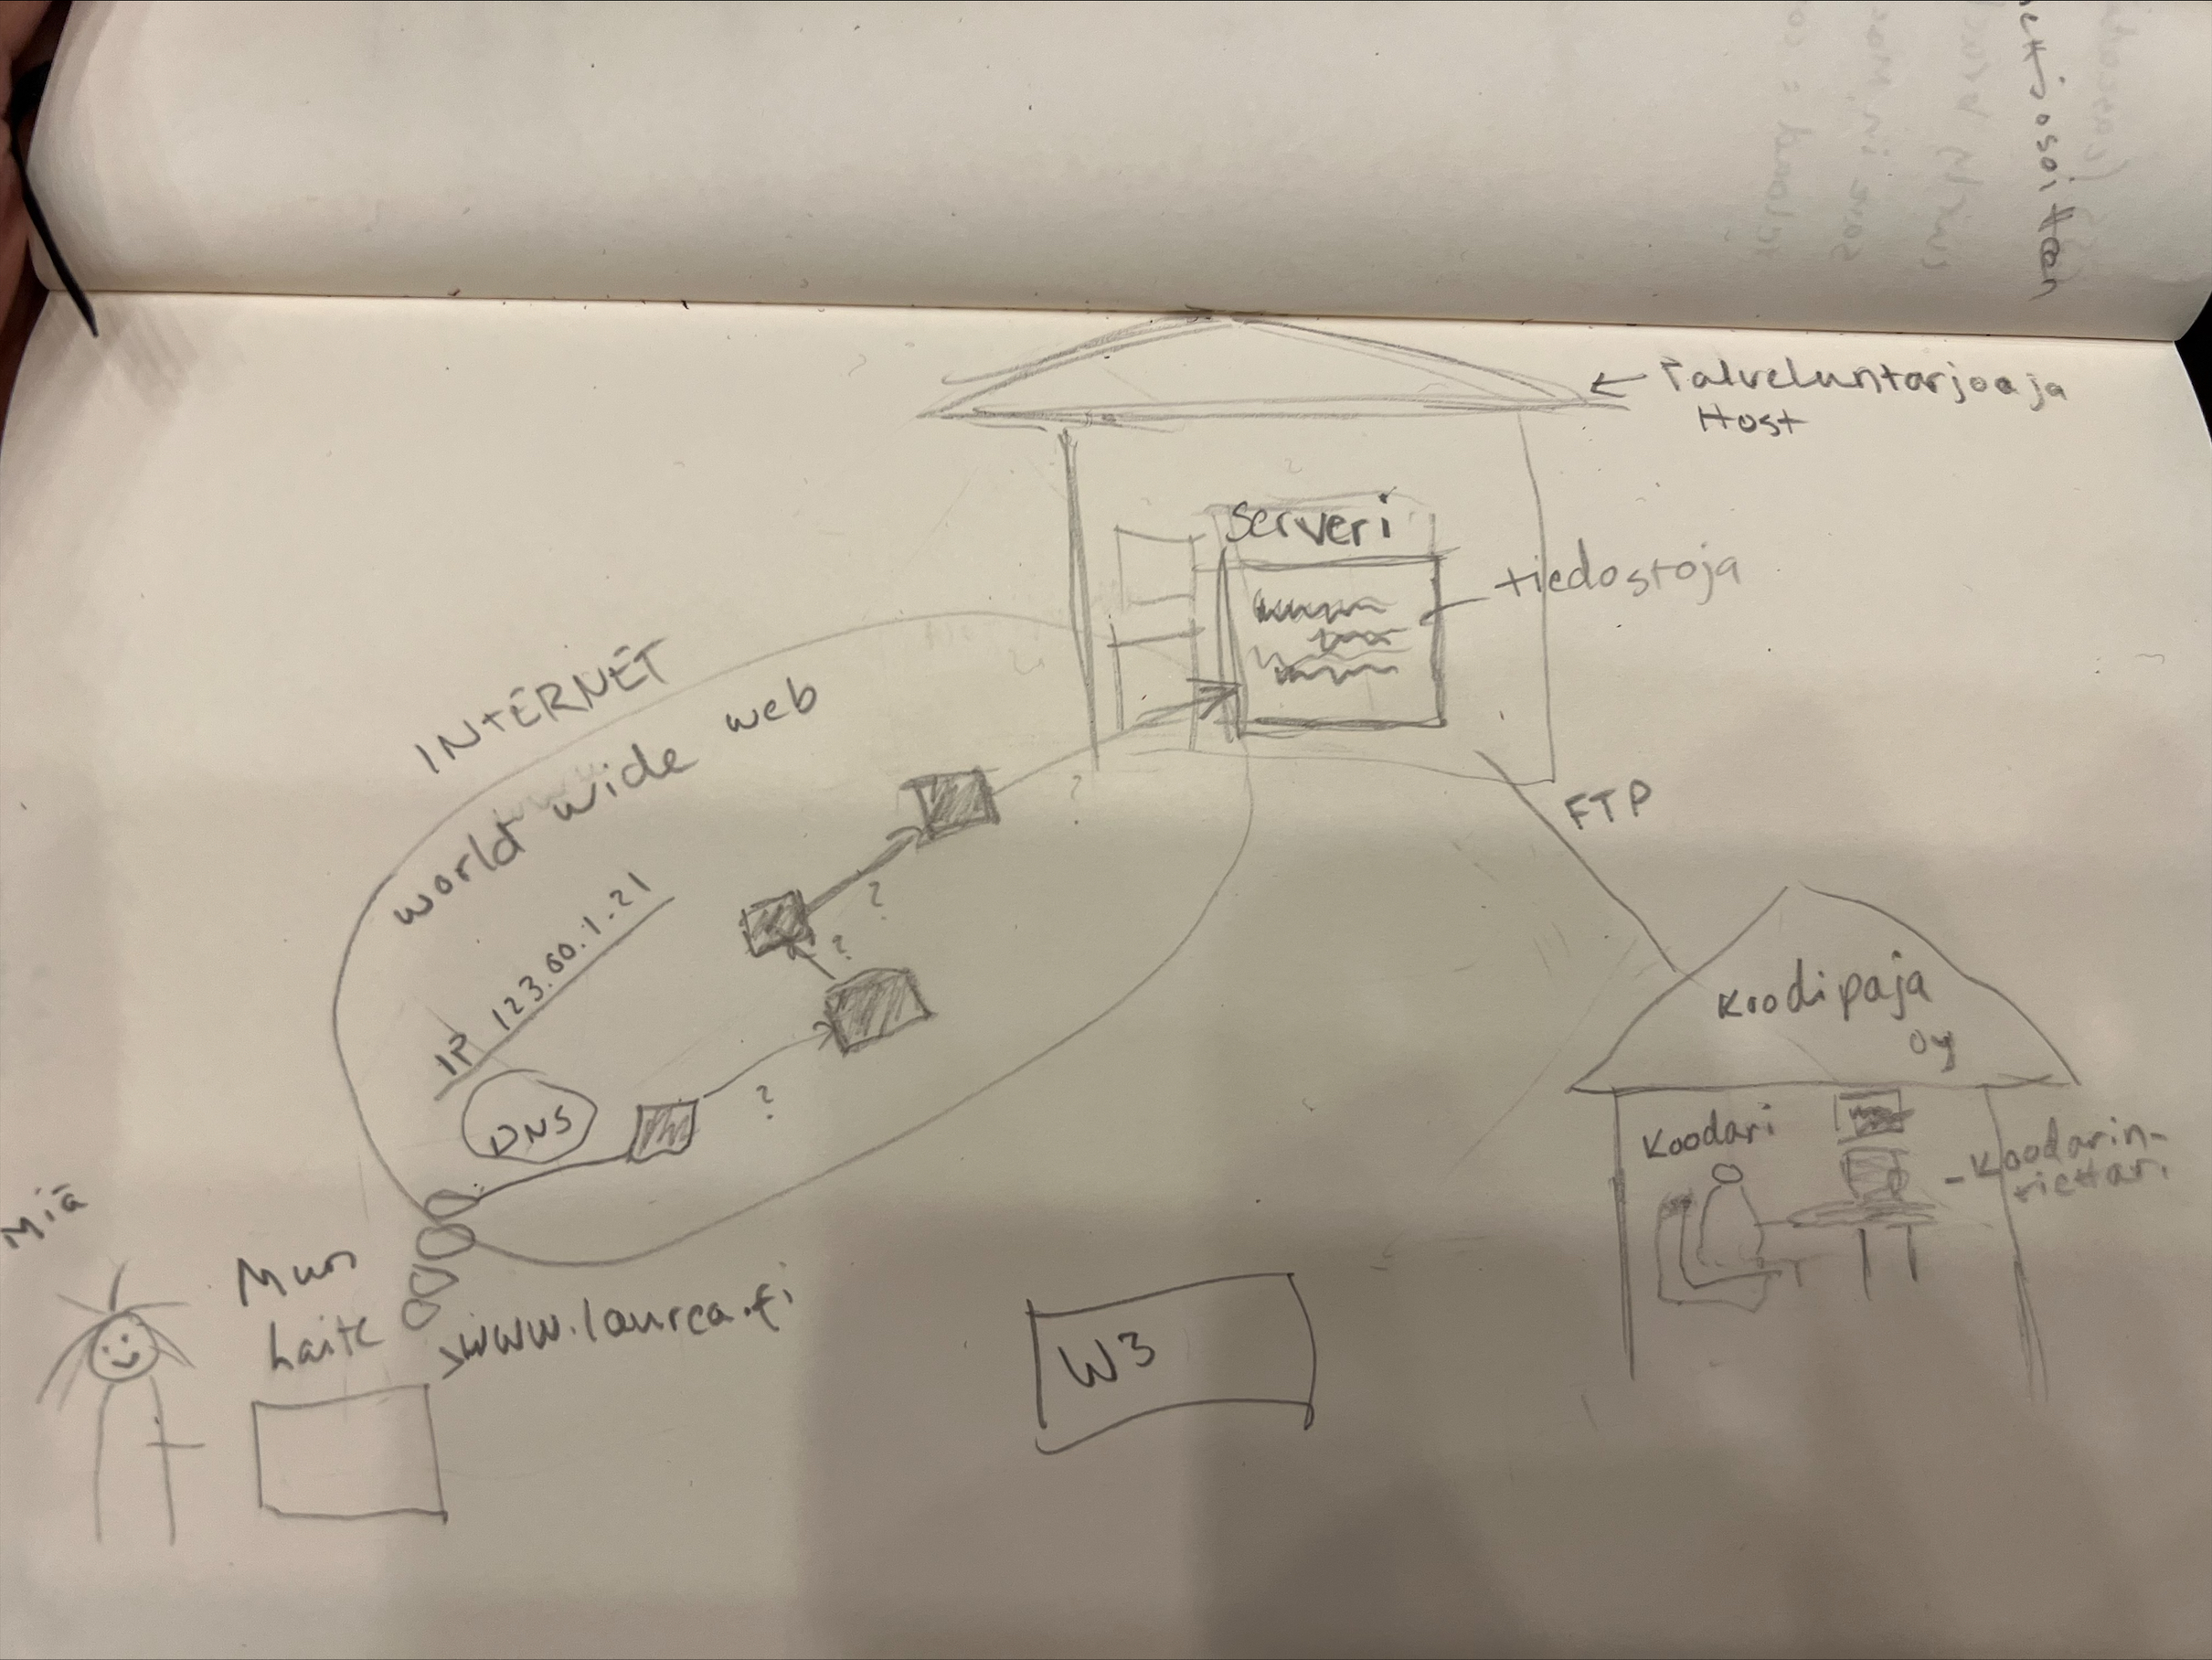 ← Palveluntarjoaja
Host
Serveri
tiedostoja
INTERNET
world wide web
IP 123.60.1.21
DNS
?
?
?
?
FTP
Koodipaja
oy
Koodari
-Koodarin-
tiettari
Miä
Mun
laite
>www.laurea.fi
W3